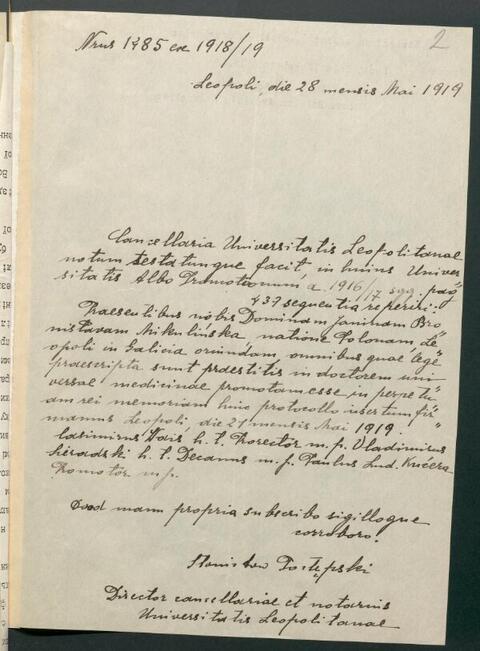 2
Nrus 1785 ex 1918/19
Leopoli, die 28 mensis Mai 1919
Cancellaria Universitatis Leopolitanae
notum testatumque facit, in huius Univer
sitatis Albo Promotionum a. 1916/7 sqq. pag
437 sequentia reperiri:
"Praesentibus nobis Dominam Janinam Bro
nislavam Mikulińska, natione Polonam, Le
opoli in Galicia oriundam, omnibus quae lege
praescripta sunt praestitis in doctorem uni
versae medicinae promotam esse in perpetu
am rei memoriam hinc protocollo usertum fir
mamus Leopoli, die 21 mensis Mai 1919."
h. t. Prorector m. p. Vladimirus
h. t. Decanus m. p. Paulus Lud. Kučera
Promotor m. p.
Quod manu propria subscribo sigilloque
corroboro!
Stanisław
Director cancellariae et notarius
Universitatis Leopolitanae